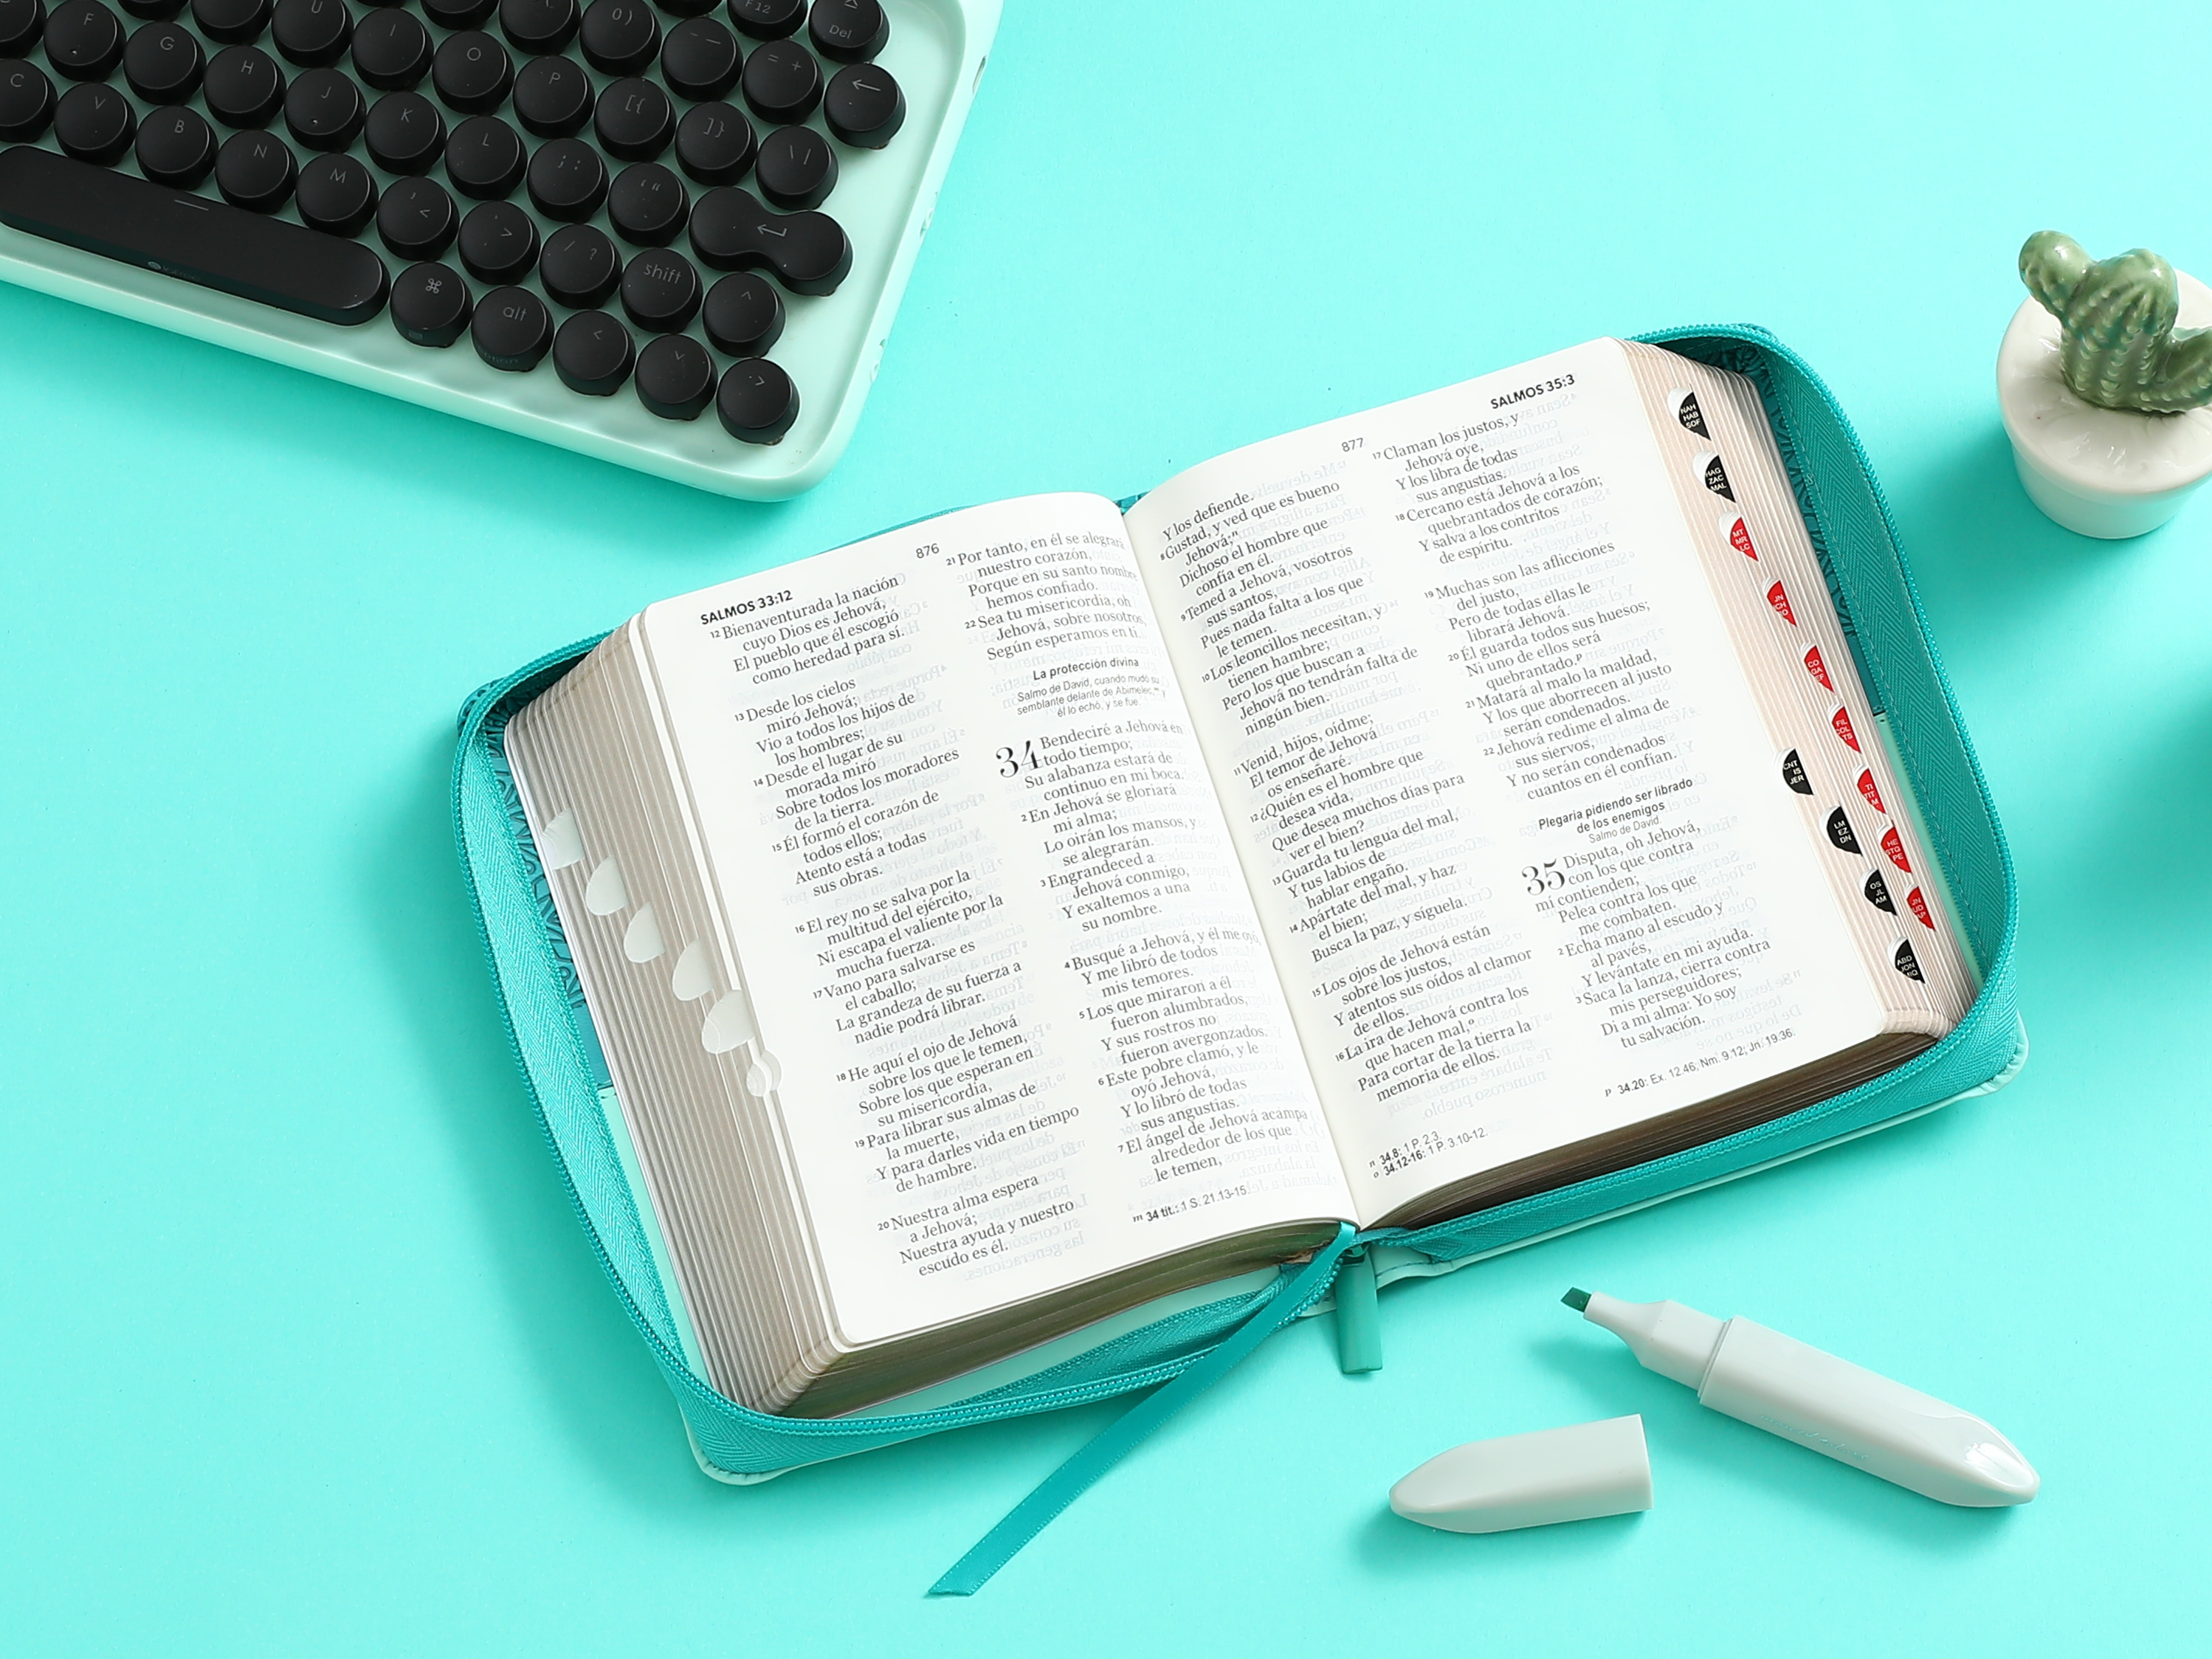 F
G
H
U
I
O
P
0 )
- —
= +
F12
Del
C
V
B
N
M
J
K
L
[ {
] }
\ |
; :
' "
, <
. >
/ ?
shift
alt
SALMOS 33:12
876
12 Bienaventurada la nación
cuyo Dios es Jehová,
El pueblo que él escogió
como heredad para sí.
13 Desde los cielos
miró Jehová;
Vio a todos los hijos de
los hombres;
14 Desde el lugar de su
morada miró
Sobre todos los moradores
de la tierra.
15 Él formó el corazón de
todos ellos;
Atento está a todas
sus obras.
16 El rey no se salva por la
multitud del ejército,
Ni escapa el valiente por la
mucha fuerza.
17 Vano para salvarse es
el caballo;
La grandeza de su fuerza a
nadie podrá librar.
18 He aquí el ojo de Jehová
sobre los que le temen,
Sobre los que esperan en
su misericordia,
19 Para librar sus almas de
la muerte,
Y para darles vida en tiempo
de hambre.
20 Nuestra alma espera
a Jehová;
Nuestra ayuda y nuestro
escudo es él.
21 Por tanto, en él se alegrará
nuestro corazón,
Porque en su santo nombre
hemos confiado.
22 Sea tu misericordia, oh
Jehová, sobre nosotros,
Según esperamos en ti.
La protección divina
Salmo de David, cuando mudó su
semblante delante de Abimelec,m y
él lo echó, y se fue.
34 Bendeciré a Jehová en
todo tiempo;
Su alabanza estará de
continuo en mi boca.
2 En Jehová se gloriará
mi alma;
Lo oirán los mansos, y
se alegrarán.
3 Engrandeced a
Jehová conmigo,
Y exaltemos a una
su nombre.
4 Busqué a Jehová, y él me oyó,
Y me libró de todos
mis temores.
5 Los que miraron a él
fueron alumbrados,
Y sus rostros no
fueron avergonzados.
6 Este pobre clamó, y le
oyó Jehová,
Y lo libró de todas
sus angustias.
7 El ángel de Jehová acampa
alrededor de los que
le temen,
m 34 tit.: 1 S. 21.13-15.
877
SALMOS 35:3
Y los defiende.
8 Gustad, y ved que es bueno
Jehová;n
Dichoso el hombre que
confía en él.
9 Temed a Jehová, vosotros
sus santos,
Pues nada falta a los que
le temen.
10 Los leoncillos necesitan, y
tienen hambre;
Pero los que buscan a
Jehová no tendrán falta de
ningún bien.
11 Venid, hijos, oídme;
El temor de Jehová
os enseñaré.
12 ¿Quién es el hombre que
desea vida,
Que desea muchos días para
ver el bien?
13 Guarda tu lengua del mal,
Y tus labios de
hablar engaño.
14 Apártate del mal, y haz
el bien;
Busca la paz, y síguela.
15 Los ojos de Jehová están
sobre los justos,
Y atentos sus oídos al clamor
de ellos.
16 La ira de Jehová contra los
que hacen mal,o
Para cortar de la tierra la
memoria de ellos.
n 34.8: 1 P. 2.3.
o 34.12-16: 1 P. 3.10-12.
17 Claman los justos, y
Jehová oye,
Y los libra de todas
sus angustias.
18 Cercano está Jehová a los
quebrantados de corazón;
Y salva a los contritos
de espíritu.
19 Muchas son las aflicciones
del justo,
Pero de todas ellas le
librará Jehová.
20 Él guarda todos sus huesos;
Ni uno de ellos será
quebrantado.p
21 Matará al malo la maldad,
Y los que aborrecen al justo
serán condenados.
22 Jehová redime el alma de
sus siervos,
Y no serán condenados
cuantos en él confían.
Plegaria pidiendo ser librado
de los enemigos
Salmo de David.
35 Disputa, oh Jehová,
con los que contra
mí contienden;
Pelea contra los que
me combaten.
2 Echa mano al escudo y
al pavés,
Y levántate en mi ayuda.
3 Saca la lanza, cierra contra
mis perseguidores;
Di a mi alma: Yo soy
tu salvación.
p 34.20: Ex. 12.46; Nm. 9.12; Jn. 19.36.
NAH
HAB
SOF
HAG
ZAC
MAL
MT
MR
LC
FIL
COL
CNT
IS
JER
LM
EZ
DN
HE
STG
PE
OS
JL
AM
ABD
JON
MIQ